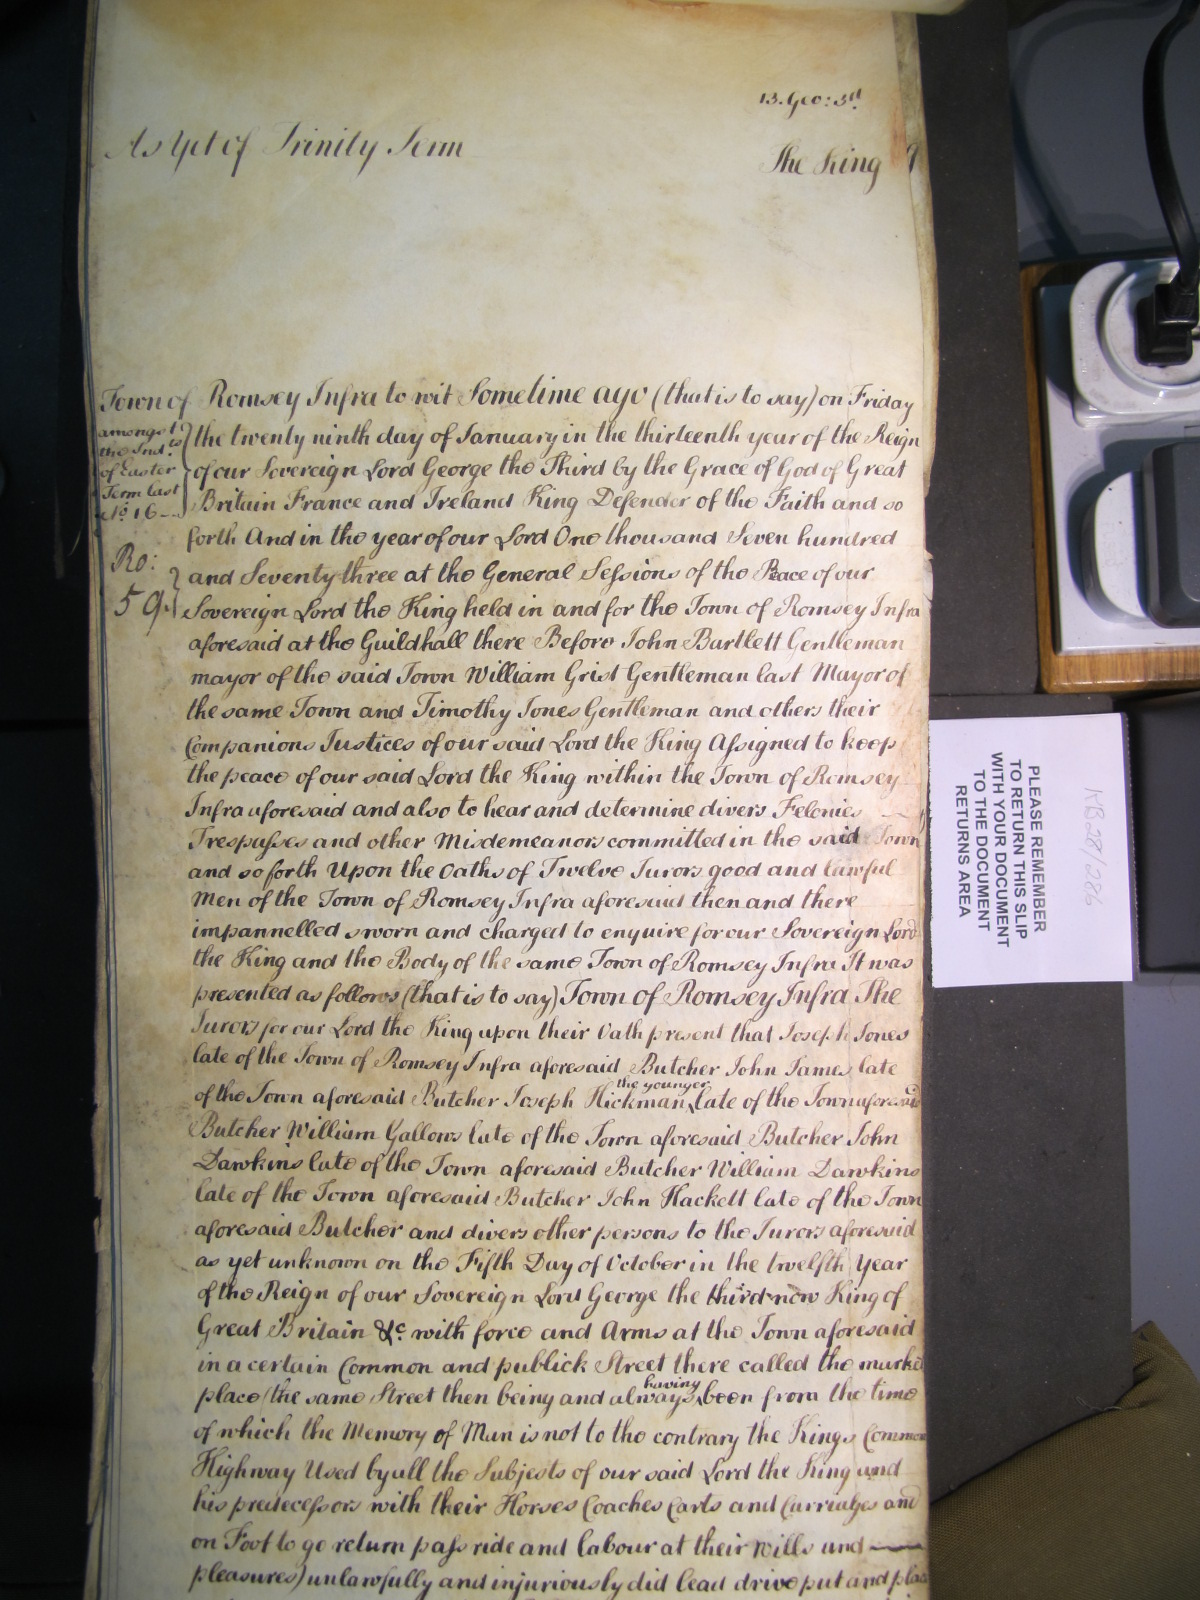 13. Geo: 3d.
As Yet of Trinity Term
The King
Town of Romsey Infra to wit Sometime ago (that is to say) on Friday
amongst
the Ind.ts
of Easter
Term last
No. 16
the twenty ninth day of January in the thirteenth year of the Reign
of our Sovereign Lord George the Third by the Grace of God of Great
Britain France and Ireland King Defender of the Faith and so
forth And in the year of our Lord One thousand Seven hundred
Ro:
59
and Seventy three at the General Sessions of the Peace of our
Sovereign Lord the King held in and for the Town of Romsey Infra
aforesaid at the Guildhall there Before John Bartlett Gentleman
mayor of the said Town William Grist Gentleman last Mayor of
the same Town and Timothy Jones Gentleman and others their
Companions Justices of our said Lord the King Assigned to keep
the peace of our said Lord the King within the Town of Romsey
Infra aforesaid and also to hear and determine divers Felonies
Trespasses and other Misdemeanors committed in the said Town
and so forth Upon the Oaths of Twelve Jurors good and lawful
Men of the Town of Romsey Infra aforesaid then and there
impannelled sworn and charged to enquire for our Sovereign Lord
the King and the Body of the same Town of Romsey Infra It was
presented as follows (that is to say) Town of Romsey Infra The
Jurors for our Lord the King upon their Oath present that Joseph Jones
late of the Town of Romsey Infra aforesaid Butcher John James late
of the Town aforesaid Butcher Joseph Hickman the younger late of the Town aforesaid
Butcher William Gallows late of the Town aforesaid Butcher John
Dawkins late of the Town aforesaid Butcher William Dawkins
late of the Town aforesaid Butcher John Hackett late of the Town
aforesaid Butcher and divers other persons to the Jurors aforesaid
as yet unknown on the Fifth Day of October in the twelfth Year
of the Reign of our Sovereign Lord George the third now King of
Great Britain &c. with force and Arms at the Town aforesaid
in a certain Common and publick Street there called the market
place (the same Street then being and always having been from the time
of which the Memory of Man is not to the contrary the Kings Common
Highway Used by all the Subjects of our said Lord the King and
his predecessors with their Horses Coaches Carts and Carriages and
on Foot to go return pass ride and labour at their Wills and
pleasures) unlawfully and injuriously did lead drive put and place
PLEASE REMEMBER
TO RETURN THIS SLIP
WITH YOUR DOCUMENT
TO THE DOCUMENT
RETURNS AREA
KB28/286